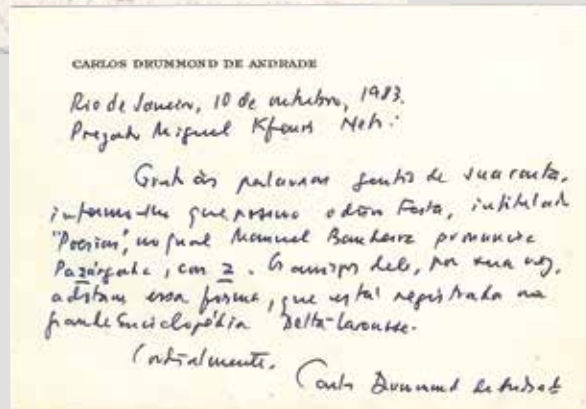 CARLOS DRUMMOND DE ANDRADE
Rio de Janeiro, 10 de outubro, 1983.
Prezado Miguel Kfouri Neto:
Grato às palavras gentis de sua carta,
informo-lhe que possuo o disco Festa, intitulado
"Poesias", no qual Manuel Bandeira pronuncia
Pazárgada, com z. Os amigos dele, por sua vez,
adotam essa forma, que está registrada na
grande Enciclopédia Delta-Larousse.
Cordialmente,
Carlos Drummond de Andrade